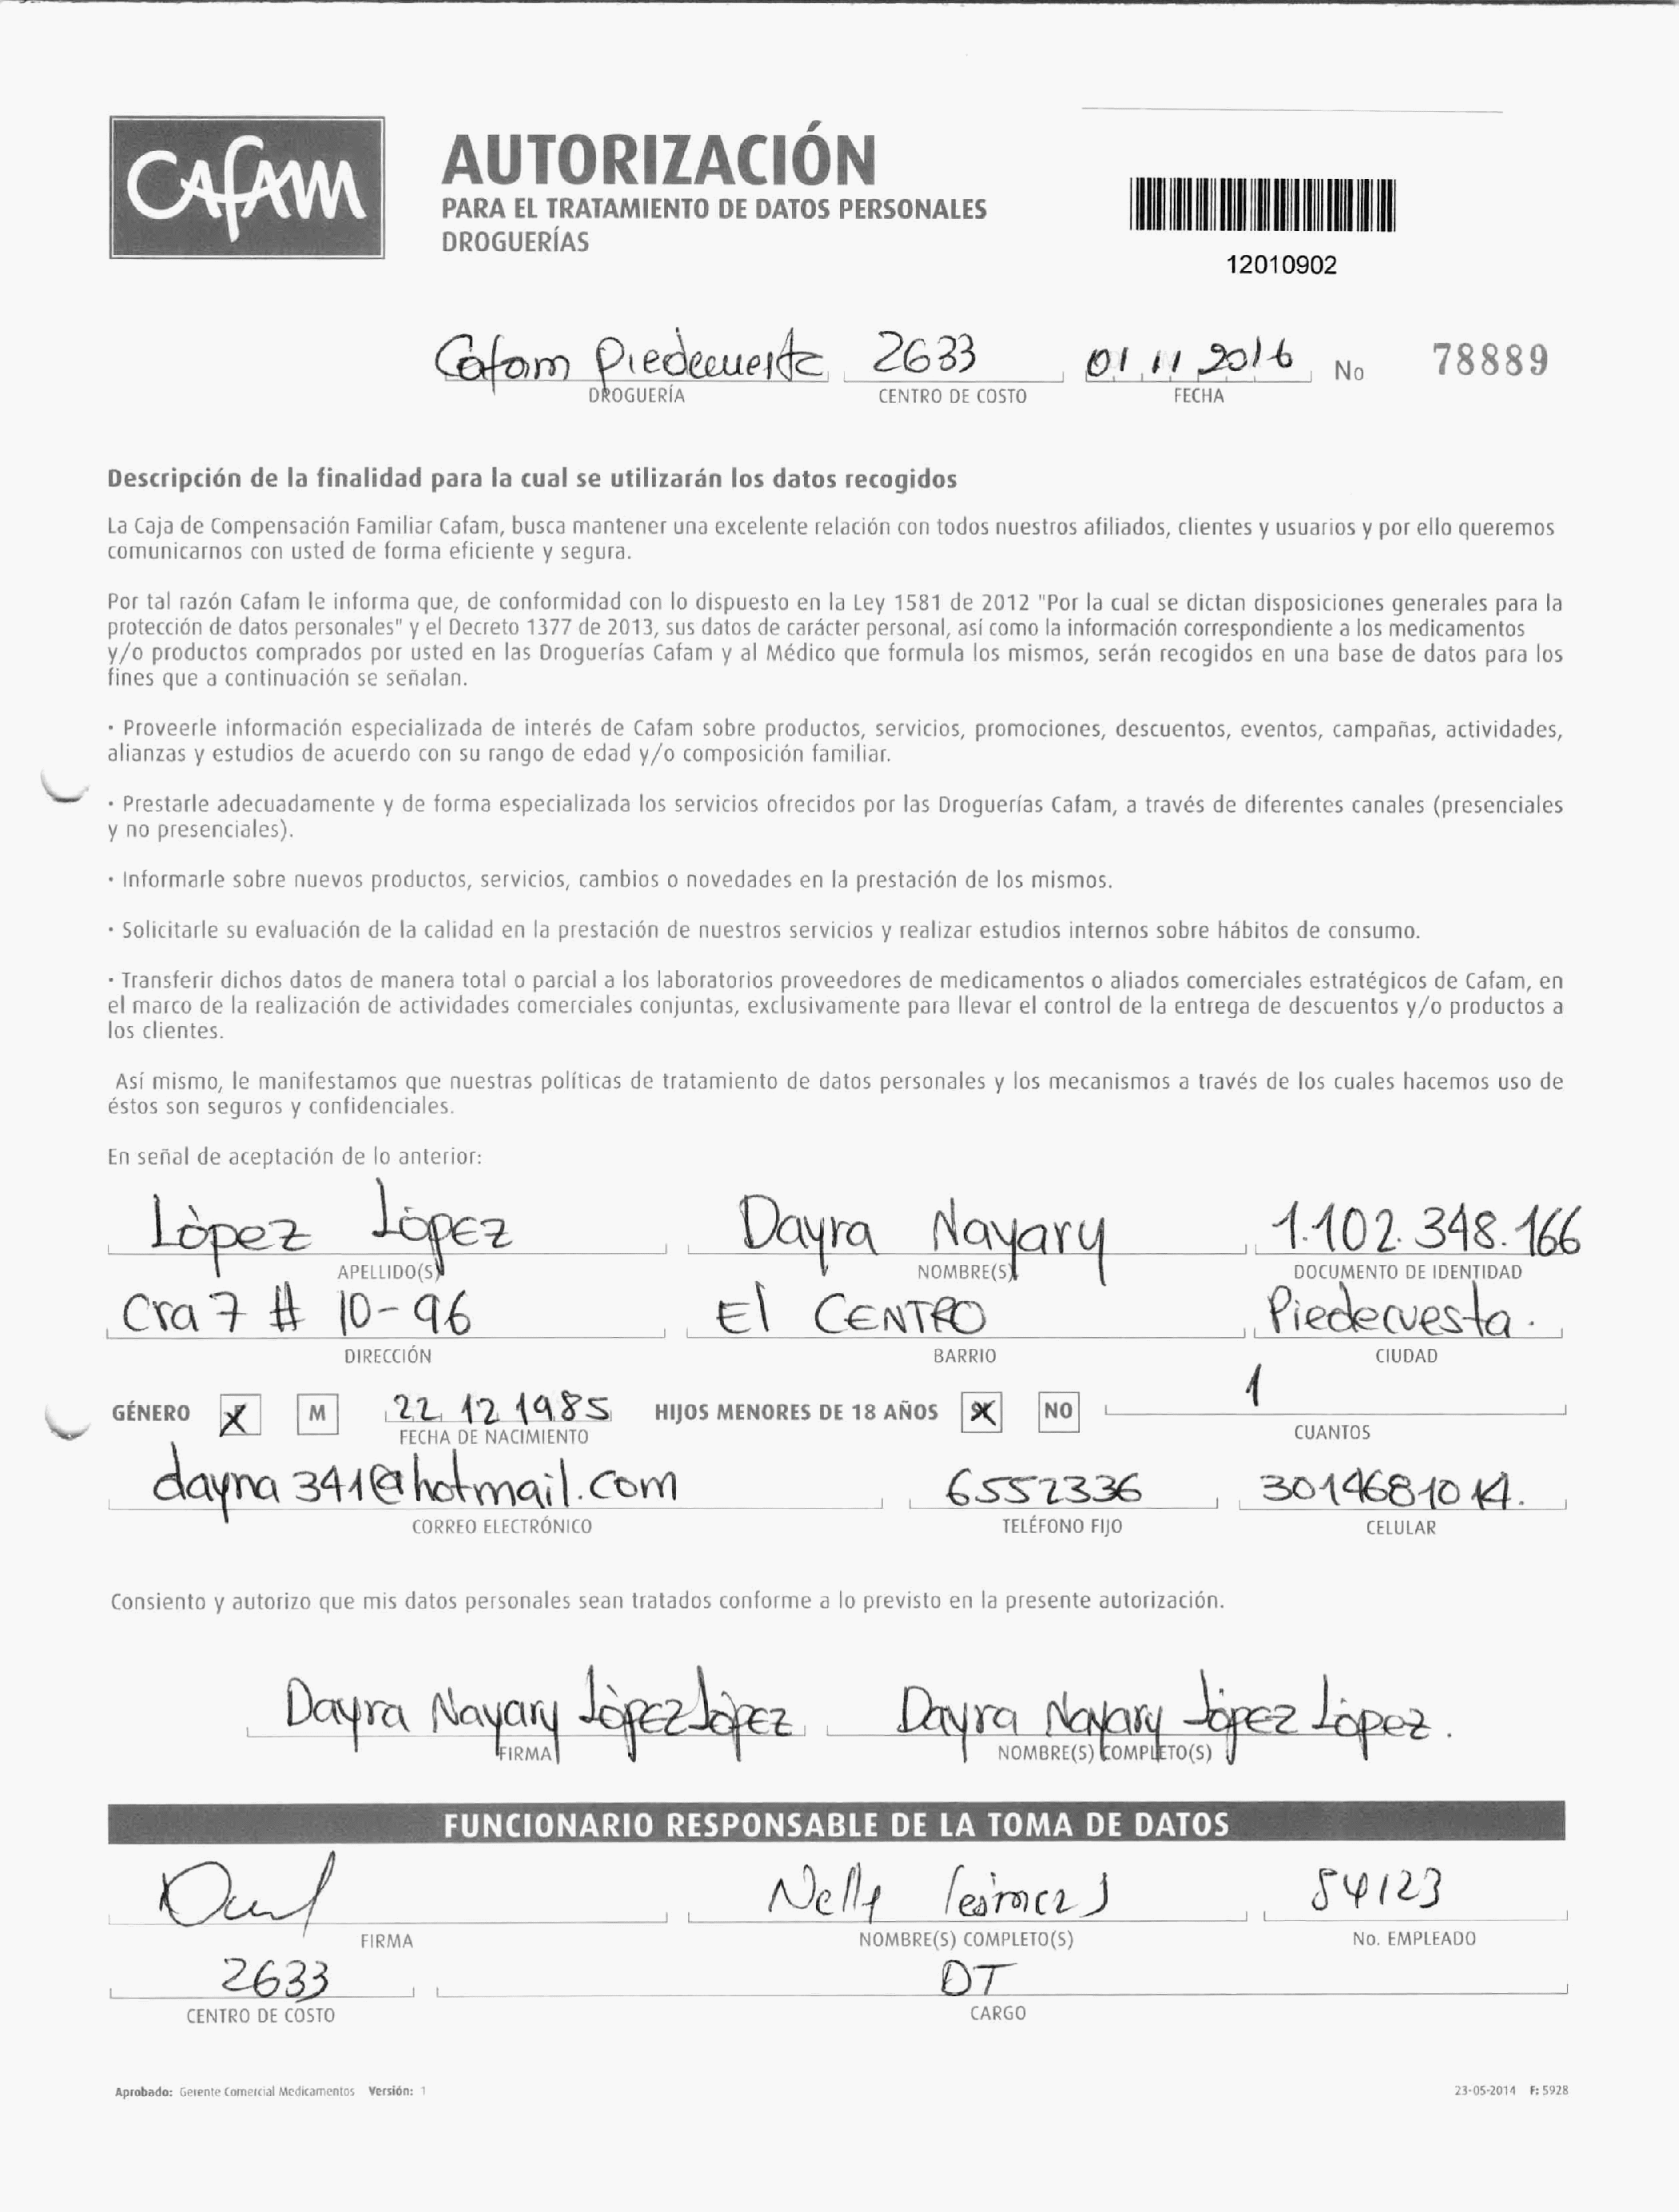 CAFAM
AUTORIZACIÓN
PARA EL TRATAMIENTO DE DATOS PERSONALES
DROGUERÍAS
12010902
Cafam Piedecuesta 2633 01 11 2016 No 78889
DROGUERÍA CENTRO DE COSTO FECHA
Descripción de la finalidad para la cual se utilizarán los datos recogidos
La Caja de Compensación Familiar Cafam, busca mantener una excelente relación con todos nuestros afiliados, clientes y usuarios y por ello queremos
comunicarnos con usted de forma eficiente y segura.
Por tal razón Cafam le informa que, de conformidad con lo dispuesto en la Ley 1581 de 2012 "Por la cual se dictan disposiciones generales para la
protección de datos personales" y el Decreto 1377 de 2013, sus datos de carácter personal, así como la información correspondiente a los medicamentos
y/o productos comprados por usted en las Droguerías Cafam y al Médico que formula los mismos, serán recogidos en una base de datos para los
fines que a continuación se señalan.
· Proveerle información especializada de interés de Cafam sobre productos, servicios, promociones, descuentos, eventos, campañas, actividades,
alianzas y estudios de acuerdo con su rango de edad y/o composición familiar.
· Prestarle adecuadamente y de forma especializada los servicios ofrecidos por las Droguerías Cafam, a través de diferentes canales (presenciales
y no presenciales).
· Informarle sobre nuevos productos, servicios, cambios o novedades en la prestación de los mismos.
· Solicitarle su evaluación de la calidad en la prestación de nuestros servicios y realizar estudios internos sobre hábitos de consumo.
· Transferir dichos datos de manera total o parcial a los laboratorios proveedores de medicamentos o aliados comerciales estratégicos de Cafam, en
el marco de la realización de actividades comerciales conjuntas, exclusivamente para llevar el control de la entrega de descuentos y/o productos a
los clientes.
Así mismo, le manifestamos que nuestras políticas de tratamiento de datos personales y los mecanismos a través de los cuales hacemos uso de
éstos son seguros y confidenciales.
En señal de aceptación de lo anterior:
López López Dayra Nayary 1.102.348.166
APELLIDO(S) NOMBRE(S) DOCUMENTO DE IDENTIDAD
Cra 7 # 10-96 El CENTRO Piedecuesta.
DIRECCIÓN BARRIO CIUDAD
GÉNERO X M 22 12 1985 HIJOS MENORES DE 18 AÑOS X NO 1
FECHA DE NACIMIENTO CUANTOS
dayna341@hotmail.com 6552336 3014681014.
CORREO ELECTRÓNICO TELÉFONO FIJO CELULAR
Consiento y autorizo que mis datos personales sean tratados conforme a lo previsto en la presente autorización.
Dayra Nayary López López Dayra Nayary López López.
FIRMA NOMBRE(S) COMPLETO(S)
FUNCIONARIO RESPONSABLE DE LA TOMA DE DATOS
Nelly 84123
FIRMA NOMBRE(S) COMPLETO(S) No. EMPLEADO
2633 DT
CENTRO DE COSTO CARGO
Aprobado: Gerente Comercial Medicamentos Versión: 1 23-05-2014 F: 5928